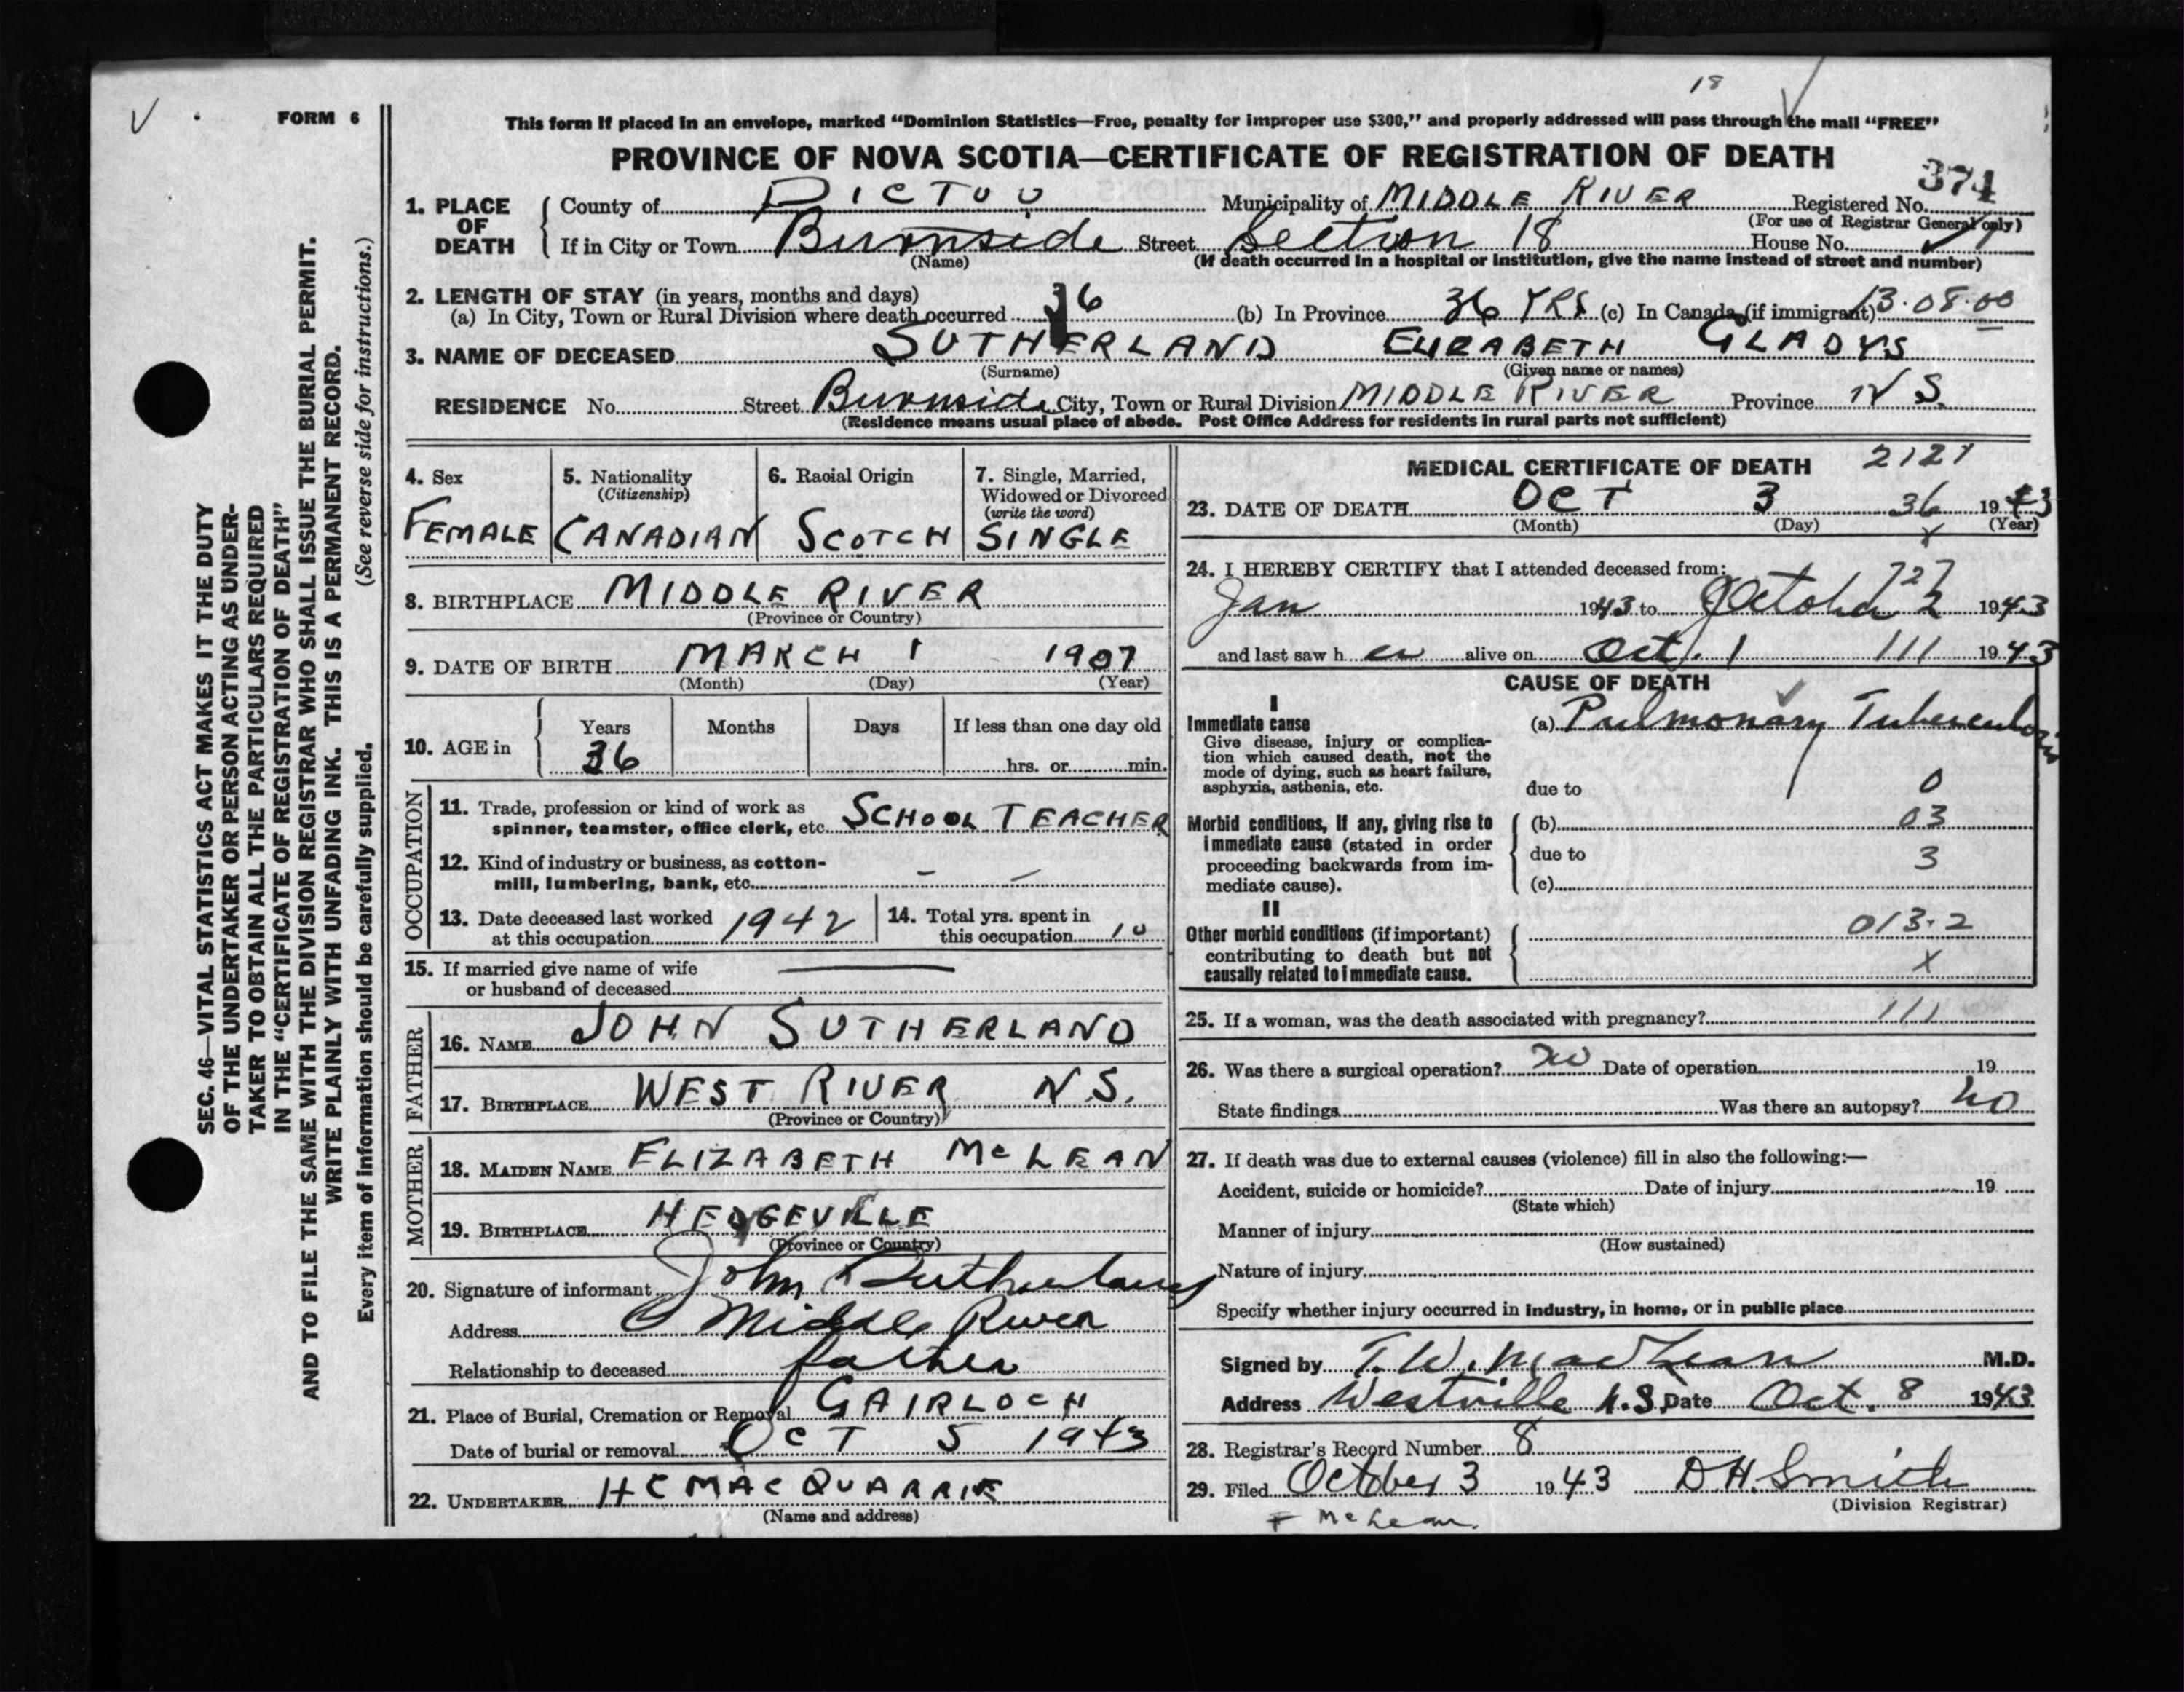 18
FORM 6
This form if placed in an envelope, marked "Dominion Statistics—Free, penalty for improper use $300," and properly addressed will pass through the mail "FREE"
PROVINCE OF NOVA SCOTIA—CERTIFICATE OF REGISTRATION OF DEATH
374
1. PLACE OF DEATH { County of PICTOU Municipality of MIDDLE RIVER Registered No.
(For use of Registrar General only)
If in City or Town Burnside Street Section 18 House No.
(Name) (If death occurred in a hospital or institution, give the name instead of street and number)
2. LENGTH OF STAY (in years, months and days)
(a) In City, Town or Rural Division where death occurred 36 (b) In Province 36 YRS (c) In Canada (if immigrant) 13.08.00
3. NAME OF DECEASED SUTHERLAND ELIZABETH GLADYS
(Surname) (Given name or names)
RESIDENCE No. Street Burnside City, Town or Rural Division MIDDLE RIVER Province N S.
(Residence means usual place of abode. Post Office Address for residents in rural parts not sufficient)
4. Sex 5. Nationality (Citizenship) 6. Racial Origin 7. Single, Married, Widowed or Divorced (write the word)
FEMALE CANADIAN SCOTCH SINGLE
8. BIRTHPLACE MIDDLE RIVER
(Province or Country)
9. DATE OF BIRTH MARCH 1 1907
(Month) (Day) (Year)
10. AGE in { Years Months Days If less than one day old
36 hrs. or min.
OCCUPATION
11. Trade, profession or kind of work as
spinner, teamster, office clerk, etc. SCHOOL TEACHER
12. Kind of industry or business, as cotton-
mill, lumbering, bank, etc. – –
13. Date deceased last worked
at this occupation 1942
14. Total yrs. spent in
this occupation 10
15. If married give name of wife
or husband of deceased
FATHER
16. NAME JOHN SUTHERLAND
17. BIRTHPLACE WEST RIVER N.S.
(Province or Country)
MOTHER
18. MAIDEN NAME ELIZABETH McLEAN
19. BIRTHPLACE HEDGEVILLE
(Province or Country)
20. Signature of informant John Sutherland
Address Middle River
Relationship to deceased father
21. Place of Burial, Cremation or Removal GAIRLOCH
Date of burial or removal OCT 5 1943
22. UNDERTAKER H C MACQUARRIE
(Name and address)
MEDICAL CERTIFICATE OF DEATH 2121
23. DATE OF DEATH OCT 3 36 1943
(Month) (Day) (Year)
X
24. I HEREBY CERTIFY that I attended deceased from:
727
Jan 1943 to October 2 1943
and last saw h er alive on Oct. 1 111 1943
CAUSE OF DEATH
I
Immediate cause
Give disease, injury or complica-
tion which caused death, not the
mode of dying, such as heart failure,
asphyxia, asthenia, etc.
(a) Pulmonary Tuberculosis
due to 0
Morbid conditions, if any, giving rise to
immediate cause (stated in order
proceeding backwards from im-
mediate cause).
(b) 03
due to 3
(c)
II
Other morbid conditions (if important)
contributing to death but not
causally related to immediate cause.
013.2
X
25. If a woman, was the death associated with pregnancy? 111
26. Was there a surgical operation? no Date of operation 19
State findings Was there an autopsy? no
27. If death was due to external causes (violence) fill in also the following:—
Accident, suicide or homicide? Date of injury 19
(State which)
Manner of injury
(How sustained)
Nature of injury
Specify whether injury occurred in industry, in home, or in public place
Signed by T. W. MacLean M.D.
Address Westville N.S. Date Oct. 8 1943
28. Registrar's Record Number 8
29. Filed October 3 1943 D.H. Smith
(Division Registrar)
McLean
SEC. 46—VITAL STATISTICS ACT MAKES IT THE DUTY
OF THE UNDERTAKER OR PERSON ACTING AS UNDER-
TAKER TO OBTAIN ALL THE PARTICULARS REQUIRED
IN THE "CERTIFICATE OF REGISTRATION OF DEATH"
AND TO FILE THE SAME WITH THE DIVISION REGISTRAR WHO SHALL ISSUE THE BURIAL PERMIT.
WRITE PLAINLY WITH UNFADING INK. THIS IS A PERMANENT RECORD.
Every item of information should be carefully supplied. (See reverse side for instructions.)